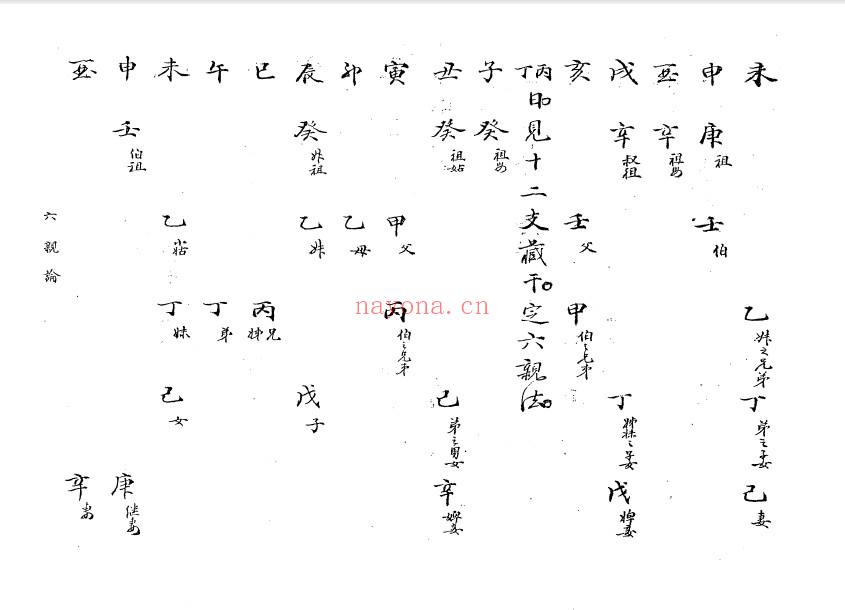 未 乙 姊之兄弟 丁 弟之子女 己 妻
申 庚 祖 壬 伯
酉 辛 祖母
戌 辛 叔祖 丁 姊妹之子女 戊
亥 壬 父 甲 伯之兄弟
丙丁日見十二支藏干定六親法
子 癸 祖母
丑 癸 祖姑 己 弟之男女 辛
寅 甲 父 丙 伯之兄弟
卯 乙 母
辰 癸 祖 乙 戊 子
巳 丙 兄姊
午 丁 弟
未 乙 丁 妹 己 女
申 壬 伯祖 庚 継妻
酉 辛 妻
六親論
nayona.cn